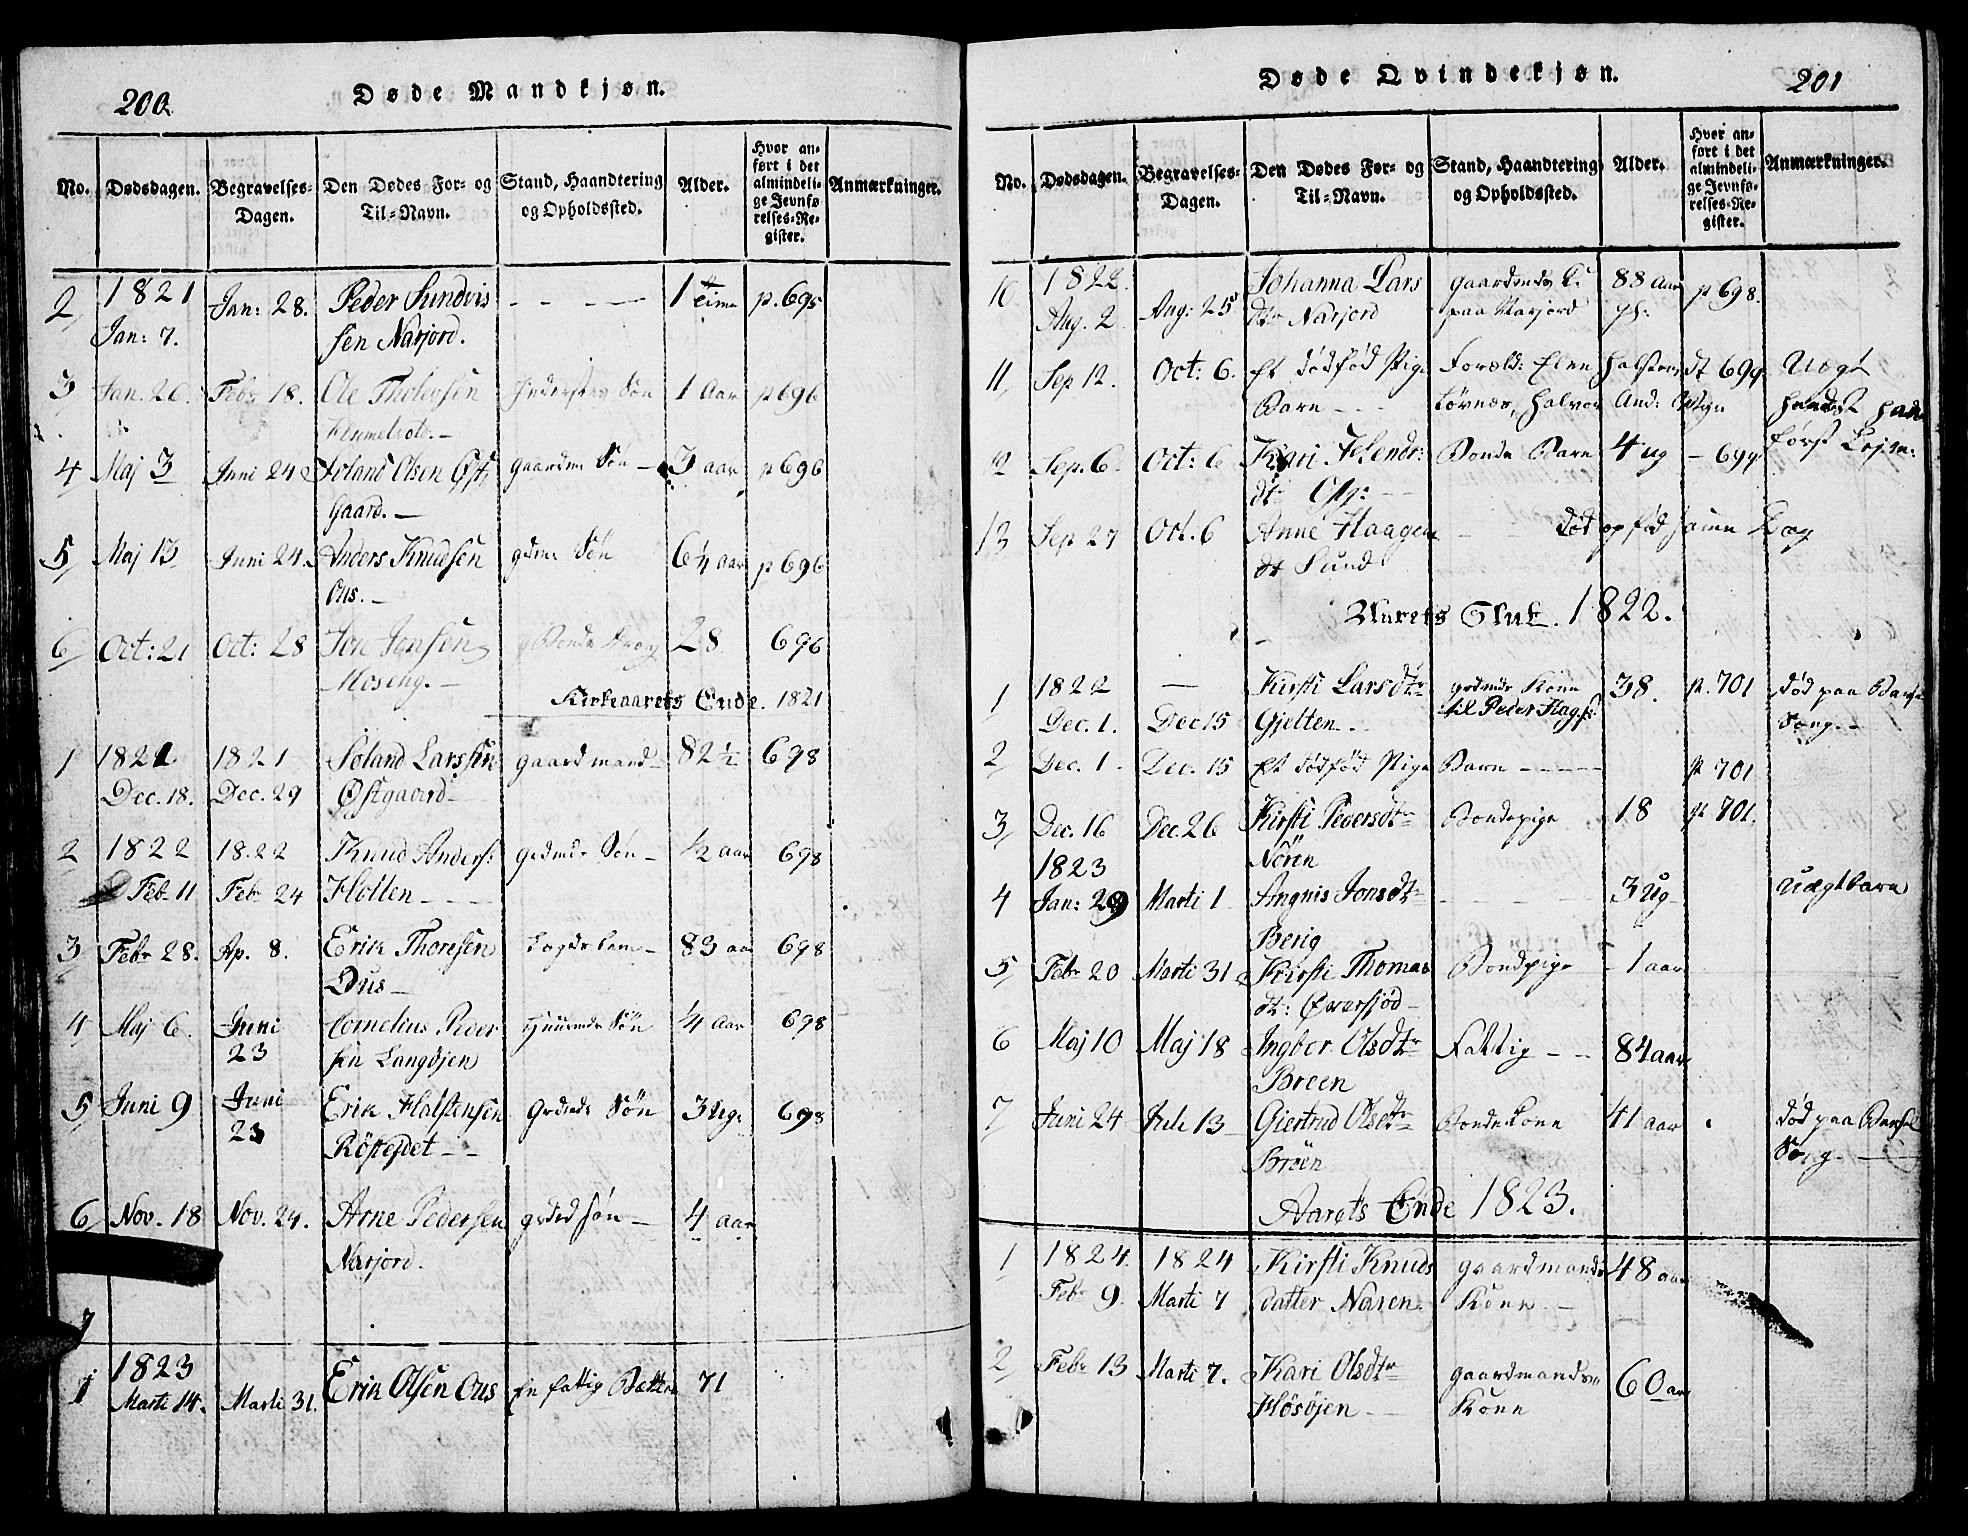 200
Døde Mandkjøn.
No.
Dødsdagen.
Begravelses-
Dagen.
Den Dødes For- og
Til-Navn.
Stand, Haandtering
og Opholdssted.
Alder.
Hvor an-
ført i det
almindeli-
ge Jevnfø-
relses-Re-
gister.
Anmærkninger.
2 1821 Jan: 28. Peder Sundvis - - - 1 time p. 695
Jan: 7. sen Narjord.
3 Jan. 20. Febr 18. Ole Tholevsen Søn 1 Aar p 696
4 Maj 3 Juni 24 Joland Olsen Øst gaardm: Søn 3 aar p 696
gaard.
5 Maj 13 Juni 24. Anders Knudsen gdm: Søn 6½ aar p 696
Ous.
6 Oct: 21 Oct: 28 Jon Jonsen Bonde 28 696
Moseng.
Kirkeaarets Ende. 1821
1 1821 1821 Joland Larssen gaardmand 82½ 698
Dec. 18. Dec. 29 Østgaard
2 1822 1822 Knud Anders: gdmds Søn ½ aar 698
Feb 11 Feb 24 Holten
3 Febr 28. Ap. 8. Erik Thoresen Lægdslem 83 aar 698
Ous
4 Maj 6. Juni Cornelius Peder Huusmds Søn 4 aar 698
23 sen Langøjen
5 Juni 9 Juni Erik Halstensen Grdmds Søn 3 Ug: 698
23 Røstejdet
6 Nov. 18 Nov. 24. Arne Pedersen grdmds søn 4 aar
Narjord.
7
1 1823
Marti 14. Marti 31. Erik Olsen Ous En fattig 71
Døde Qvindekjøn.
201
No.
Dødsdagen.
Begravelses-
Dagen.
Den Dødes For- og
Til-Navn.
Stand, Haandtering
og Opholdssted.
Alder.
Hvor an-
ført i det
almindeli-
ge Jevnfø-
relses-Re-
gister.
Anmærkninger.
10 1822. Aug: 25 Johanna Lars gaardmds K. 88 Aar p 698.
Aug. 2. dtr Narjord paa Narjord
11 Sep 12. Oct: 6. Et dødfød Pige Foreld: Elen Halstensdt 699 Uægt
Barn Tørnæs, Halvor And:
12 Sep. 6. Oct: 6 Kari Hendr: Bonde Barn 4 ug 699 først Lejerm:
dtr
13 Sep 27 Oct. 6 Anne Haagen død og fød samme Dag
dt Sund
Aarets Slut. 1822.
1 1822 — Kirsti Larsdtr grdmds Kone 38. p. 701 død paa Barsel
Dec. 1. Dec 15 Gjelten til Peder Hags: Seng.
2 Dec. 1 Dec. 15 Et dødfød Pige Barn p 701
3 Dec. 16 Dec. 26 Kirsti Pedersdtr Bondepige 18 p 701.
1823 Nören
4 Jan: 29 Marti 1 Angnis Jonsdtr 3 Ug Uægtbarn
Berig
5 Febr 20 Marti 31 Kirsti Thomas Bondpige 1 aar
dt: Øversjød
6 Maj 10 Maj 18 Ingber. Olsdtr Fattig 84 aar
Breen
7 Juni 24 Juli 13 Giertrud Olsdtr Bondekone 41 aar død paa Barsel
Bröen Seng
Aarets Ende 1823.
1 1824. 1824 Kirsti Knuds gaardmands 48 aar
Febr 9. Marti 7 datter Naren. Kone
2 Febr 13 Marti 7. Kari Olsdtr gaardmands 60 aar
Høsøjen Kone